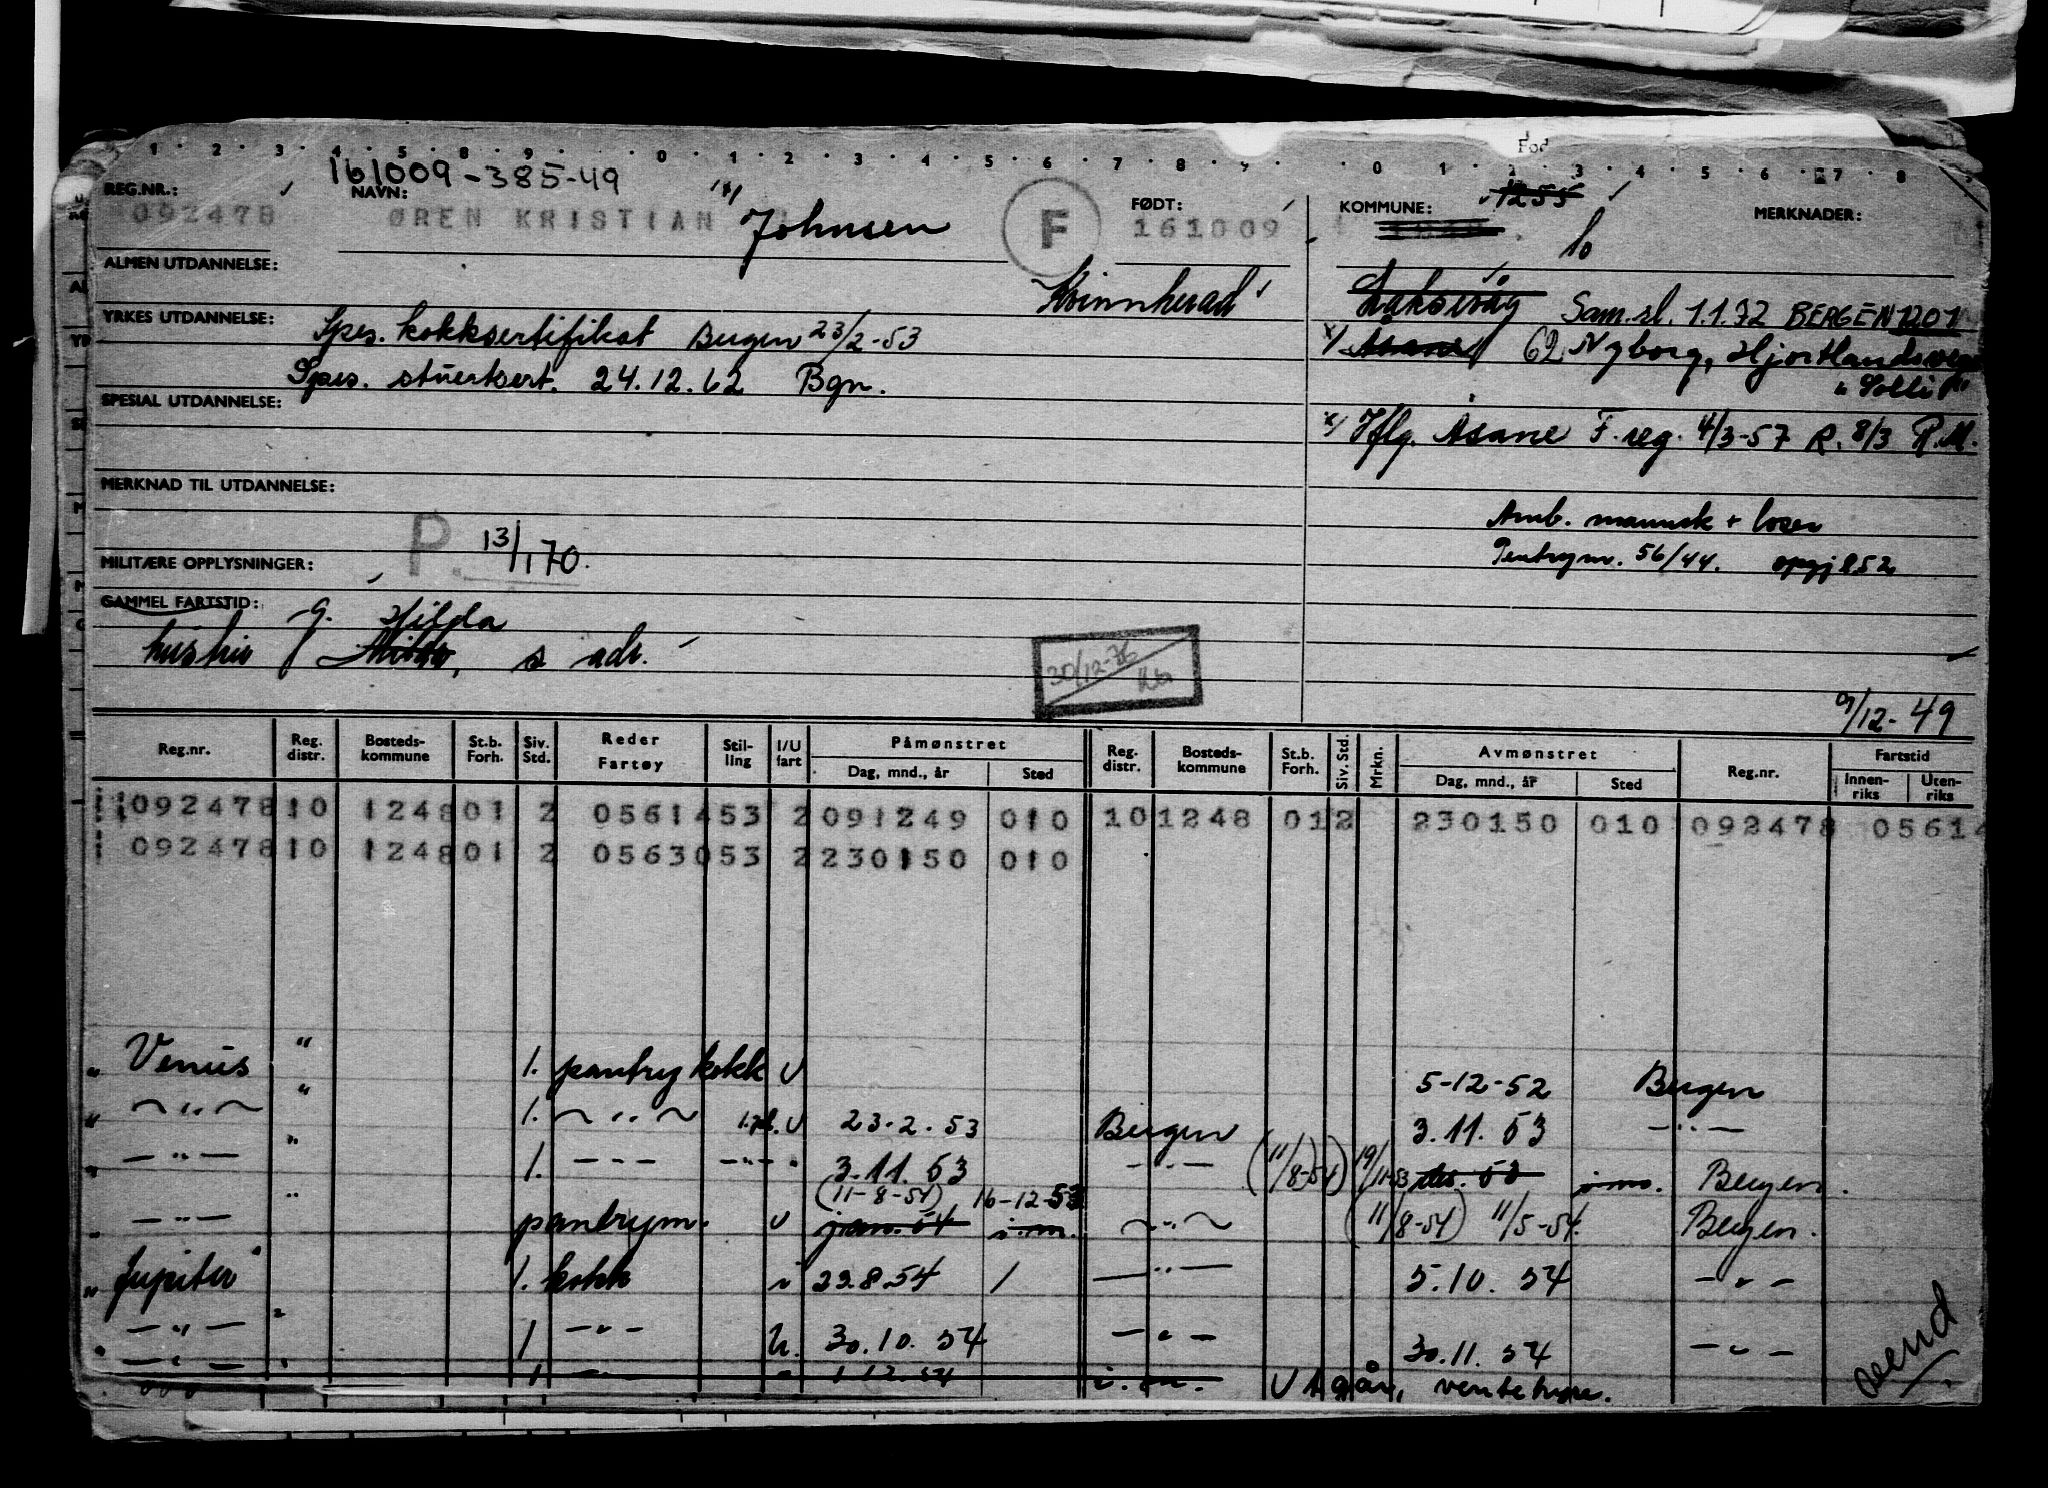 Fød
1 2 3 4 5 8 9 0 1 2 3 4 5 6 7 8 9 0 1 2 3 4 5 6 7 8
161009-385-49
REG.NR.: NAVN: FØDT: KOMMUNE: 1255 MERKNADER:
092478 ØREN KRISTIAN Johnsen F 161009
ALMEN UTDANNELSE:
Kvinnherad Laksevåg Sam.sl. 1.1.72 BERGEN 1201
YRKES UTDANNELSE:
Spes. kokksertifikat Bergen 23/2-53 x/ Åsane 62 Nyborg, Hjortlandsvegen
Spes. stuertsert. 24.12.62 Bgn. "Solli"
SPESIAL UTDANNELSE:
x/ Iflg. Åsane F.reg. 4/3-57 R. 8/3 P.M.
MERKNAD TIL UTDANNELSE:
Amb. mannsk + loser
P. 13/1 70. Pentrym. 56/44. oppgj 852
MILITÆRE OPPLYSNINGER:
GAMMEL FARTSTID:
g. Hilda
hustru Milda, s adr.
30/12-76
9/12-49
Reg.nr. Reg. distr. Bosteds-kommune St.b. Forh. Siv. Std. Reder Fartøy Stil-ling I/U fart Påmønstret Dag, mnd., år Sted Reg. distr. Bosteds-kommune St.b. Forh. Siv. Std. Mrkn. Avmønstret Dag, mnd., år Sted Reg.nr. Fartstid Innen-riks Uten-riks
092478 10 1248 01 2 05614 53 2 091249 010 10 1248 01 2 230150 010 092478 05614
092478 10 1248 01 2 05630 53 2 230150 010
" Venus " 1. pantry kokk U 5-12-52 Bergen
" — " — " 1. — " — U 23.2.53 Bergen 3.11.53 — " —
" — " — " 1. — — — — " — " 3.11.53 — " — (11/8-54) 19/11-53 des. 53 i.m. Bergen.
(11-8-54) 16-12-53
" — " — " pantrym. U jan. 54 i.m. — " — (11/8-54) 11/5-54. Bergen.
" Jupiter " 1. kokk i 29.8.54 / — " — 5.10.54 — " —
" — " — " 1 — " — U. 30.10.54 — " — 30.11.54 — " —
" — " — " 1 — — " 1.12.54 i.m. Utgår, ventetype.
vend